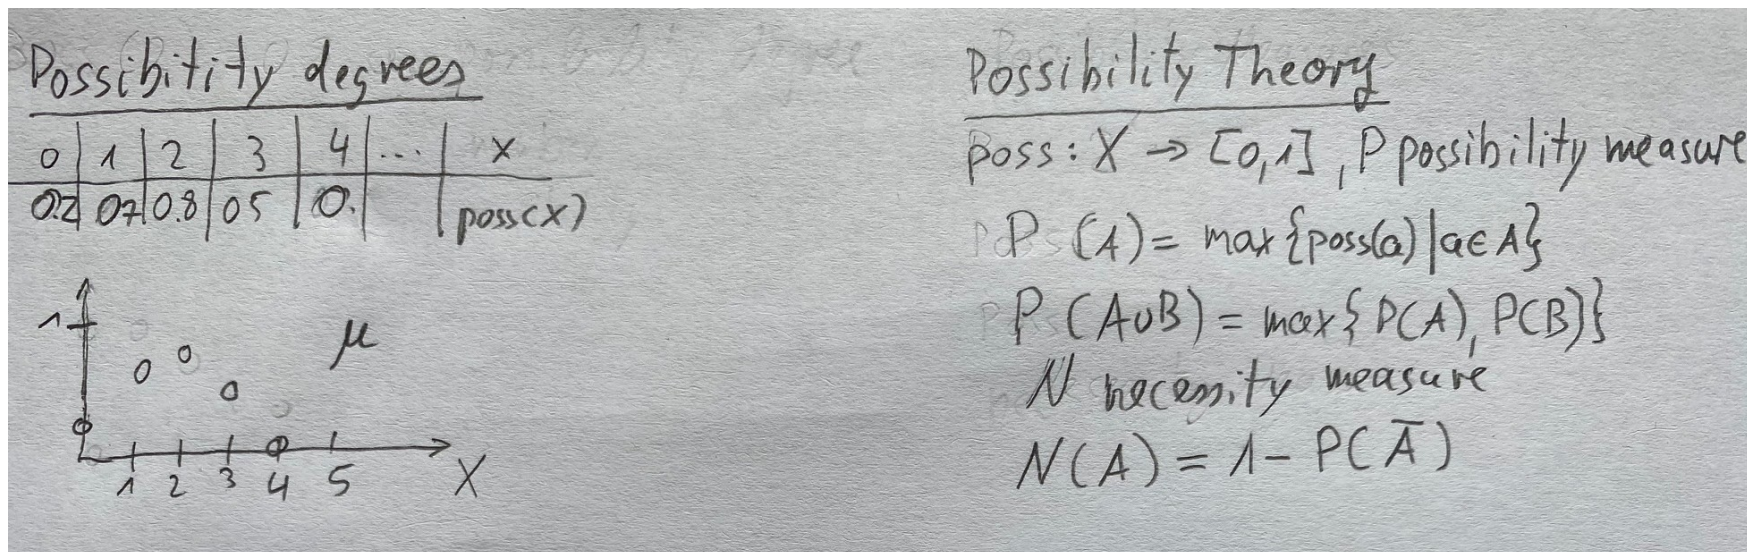 Possibitity degrees
0 | 1 | 2 | 3 | 4 | ... | x
0.2 | 07 | 0.8 | 05 | 0. | | poss(x)
1
μ
1 2 3 4 5 X
Possibility Theory
poss: X → [0,1], P possibility measure
P (A) = max {poss(a) | a∈A}
P (A∪B) = max { P(A), P(B)}
N necessity measure
N(A) = 1 - P(Ā)